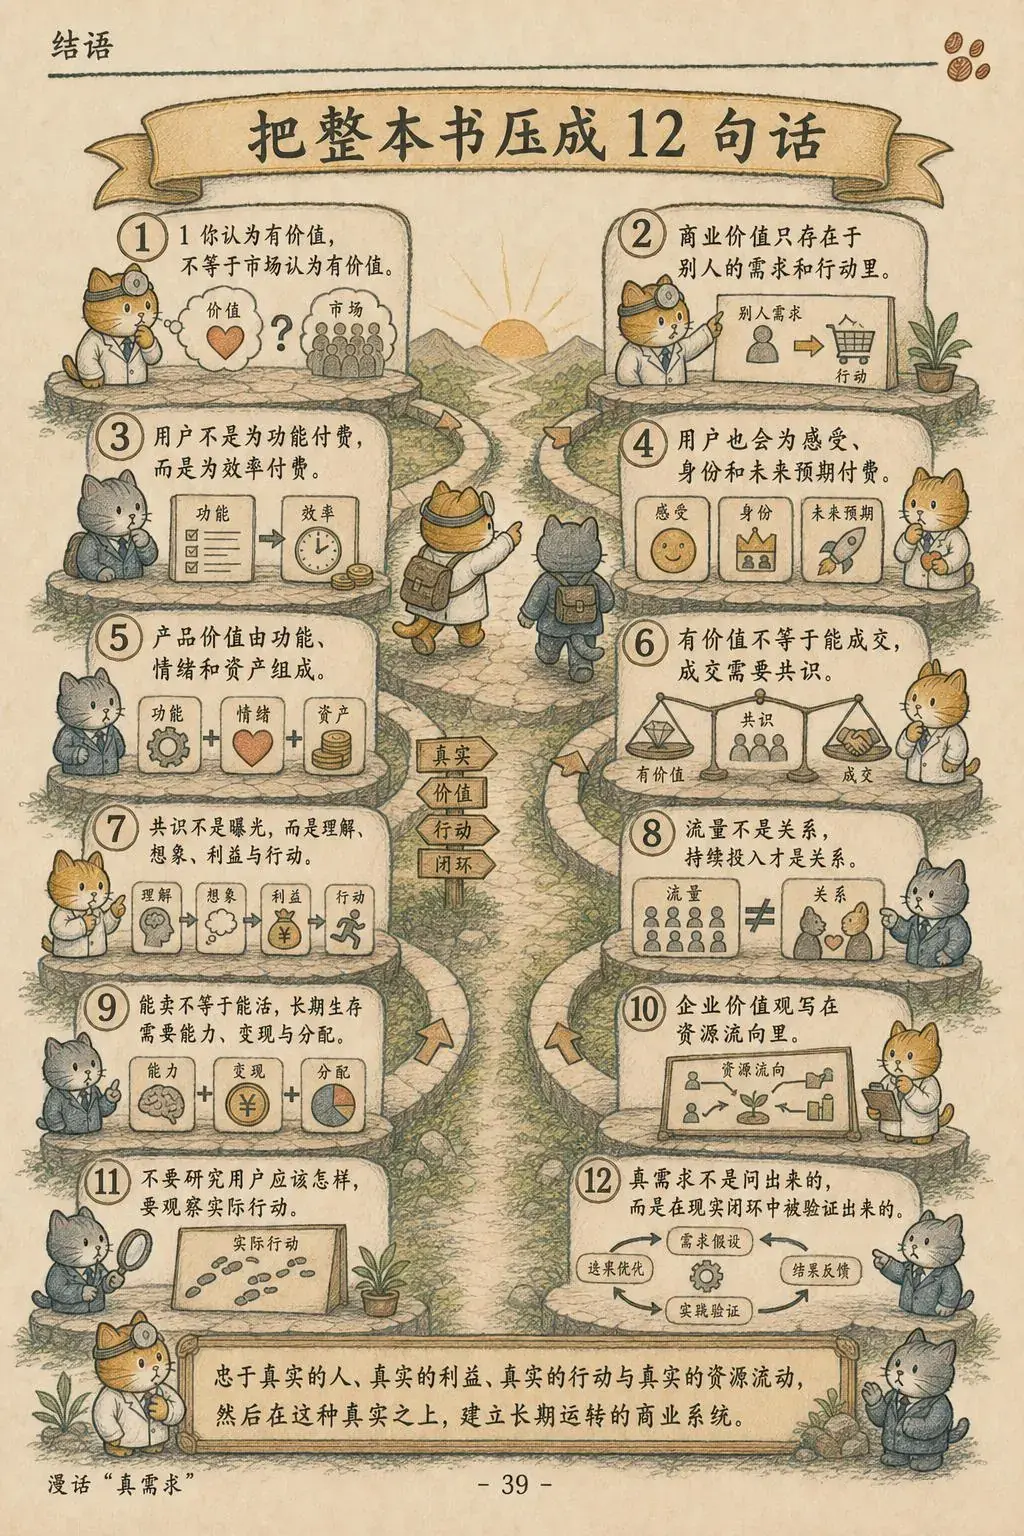 结语
把整本书压成 12 句话
①
1 你认为有价值，
不等于市场认为有价值。
价值
?
市场
②
商业价值只存在于
别人的需求和行动里。
别人需求
行动
③
用户不是为功能付费，
而是为效率付费。
功能
效率
④
用户也会为感受、
身份和未来预期付费。
感受
身份
未来预期
⑤
产品价值由功能、
情绪和资产组成。
功能
+
情绪
+
资产
⑥
有价值不等于能成交，
成交需要共识。
共识
有价值
成交
真实
价值
行动
闭环
⑦
共识不是曝光，而是理解、
想象、利益与行动。
理解
想象
利益
¥
行动
⑧
流量不是关系，
持续投入才是关系。
流量
≠
关系
⑨
能卖不等于能活，长期生存
需要能力、变现与分配。
能力
+
变现
¥
+
分配
⑩
企业价值观写在
资源流向里。
资源流向
⑪
不要研究用户应该怎样，
要观察实际行动。
实际行动
⑫
真需求不是问出来的，
而是在现实闭环中被验证出来的。
需求假设
优化
结果反馈
实践验证
忠于真实的人、真实的利益、真实的行动与真实的资源流动，
然后在这种真实之上，建立长期运转的商业系统。
漫话“真需求”
- 39 -